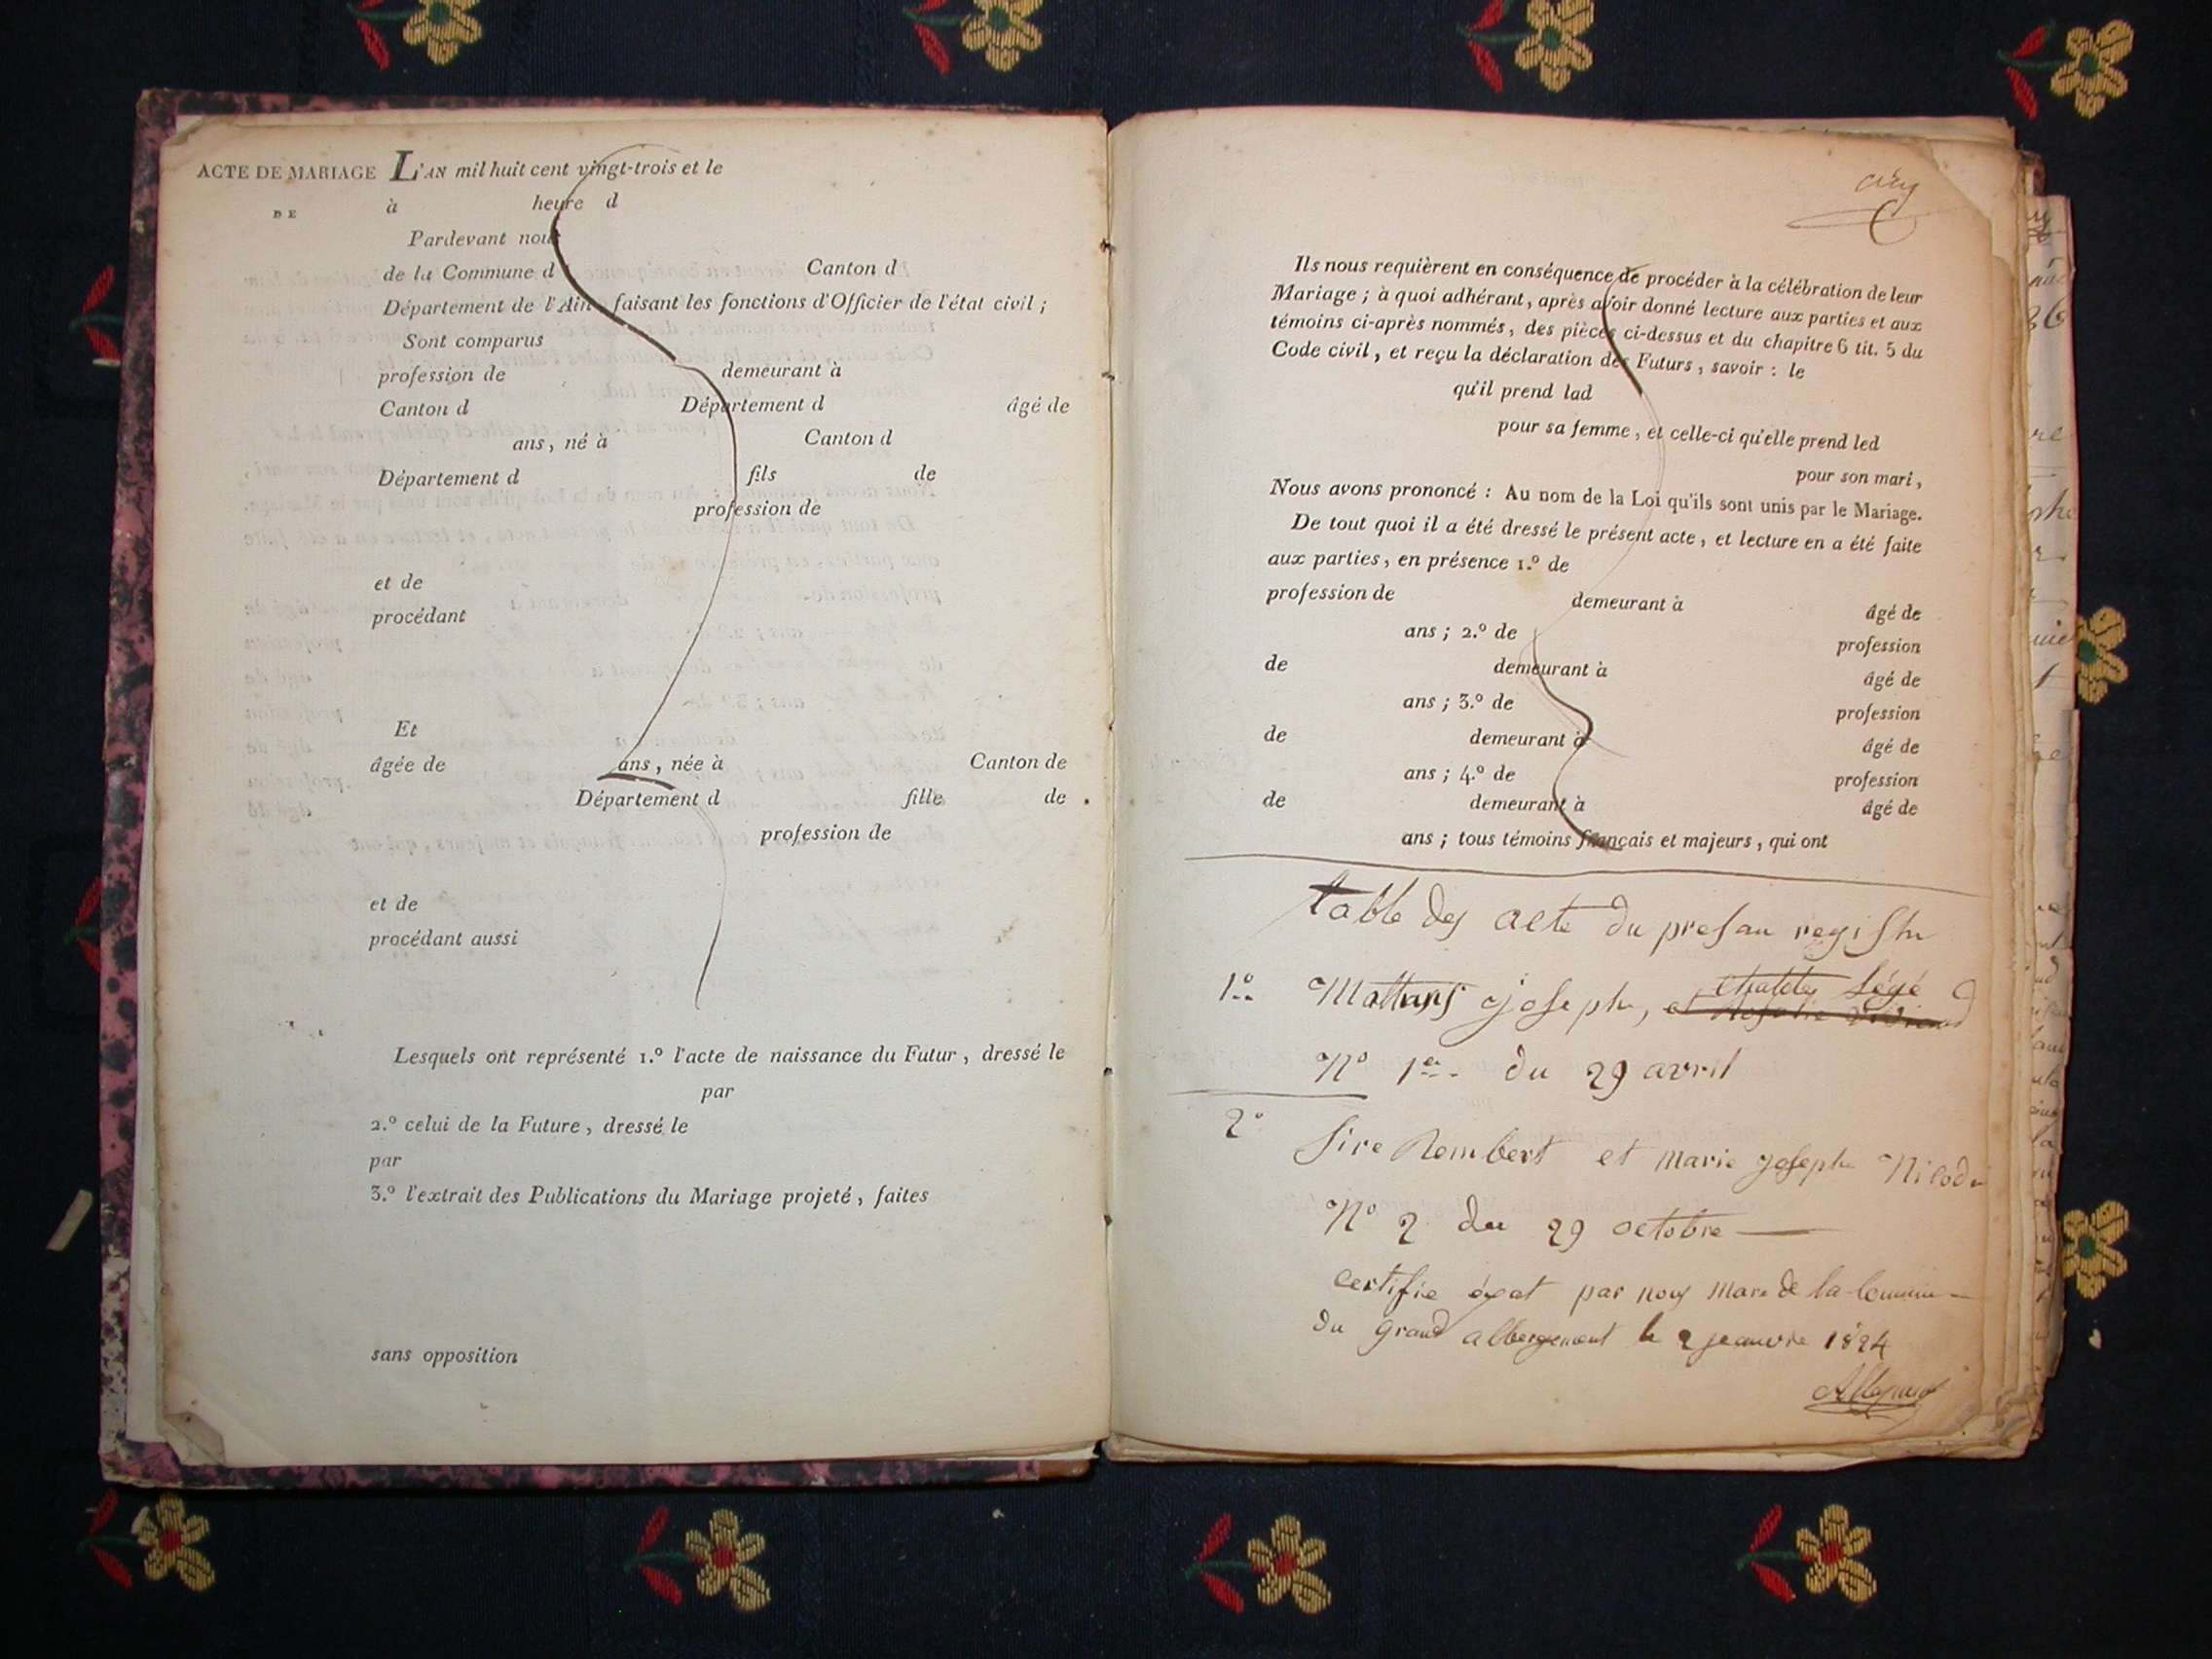 ACTE DE MARIAGE L'AN mil huit cent vingt-trois et le
DE à heure d
Pardevant nous
de la Commune d Canton d
Département de l'Ain faisant les fonctions d'Officier de l'état civil ;
Sont comparus
profession de demeurant à
Canton d Département d âgé de
ans, né à Canton d
Département d fils de
profession de
et de
procédant
Et
âgée de ans, née à Canton de
Département d fille de
profession de
et de
procédant aussi
Lesquels ont représenté 1.º l'acte de naissance du Futur, dressé le
par
2.º celui de la Future, dressé le
par
3.º l'extrait des Publications du Mariage projeté, faites
sans opposition
Ils nous requièrent en conséquence de procéder à la célébration de leur
Mariage ; à quoi adhérant, après avoir donné lecture aux parties et aux
témoins ci-après nommés, des pièces ci-dessus et du chapitre 6 tit. 5 du
Code civil, et reçu la déclaration des Futurs, savoir : le
qu'il prend lad
pour sa femme, et celle-ci qu'elle prend led
pour son mari,
Nous avons prononcé : Au nom de la Loi qu'ils sont unis par le Mariage.
De tout quoi il a été dressé le présent acte, et lecture en a été faite
aux parties, en présence 1.º de
profession de demeurant à âgé de
ans ; 2.º de profession
de demeurant à âgé de
ans ; 3.º de profession
de demeurant à âgé de
ans ; 4.º de profession
de demeurant à âgé de
ans ; tous témoins français et majeurs, qui ont
table des acte du presan registre
1º Mattans joseph, et
Nº 1er du 29 avril
2º Sire Rembert et marie joseph
Nº 2 du 29 octobre
certifie éxat par nous Mare de la
du grand albergement le 2 jeanvre 1824